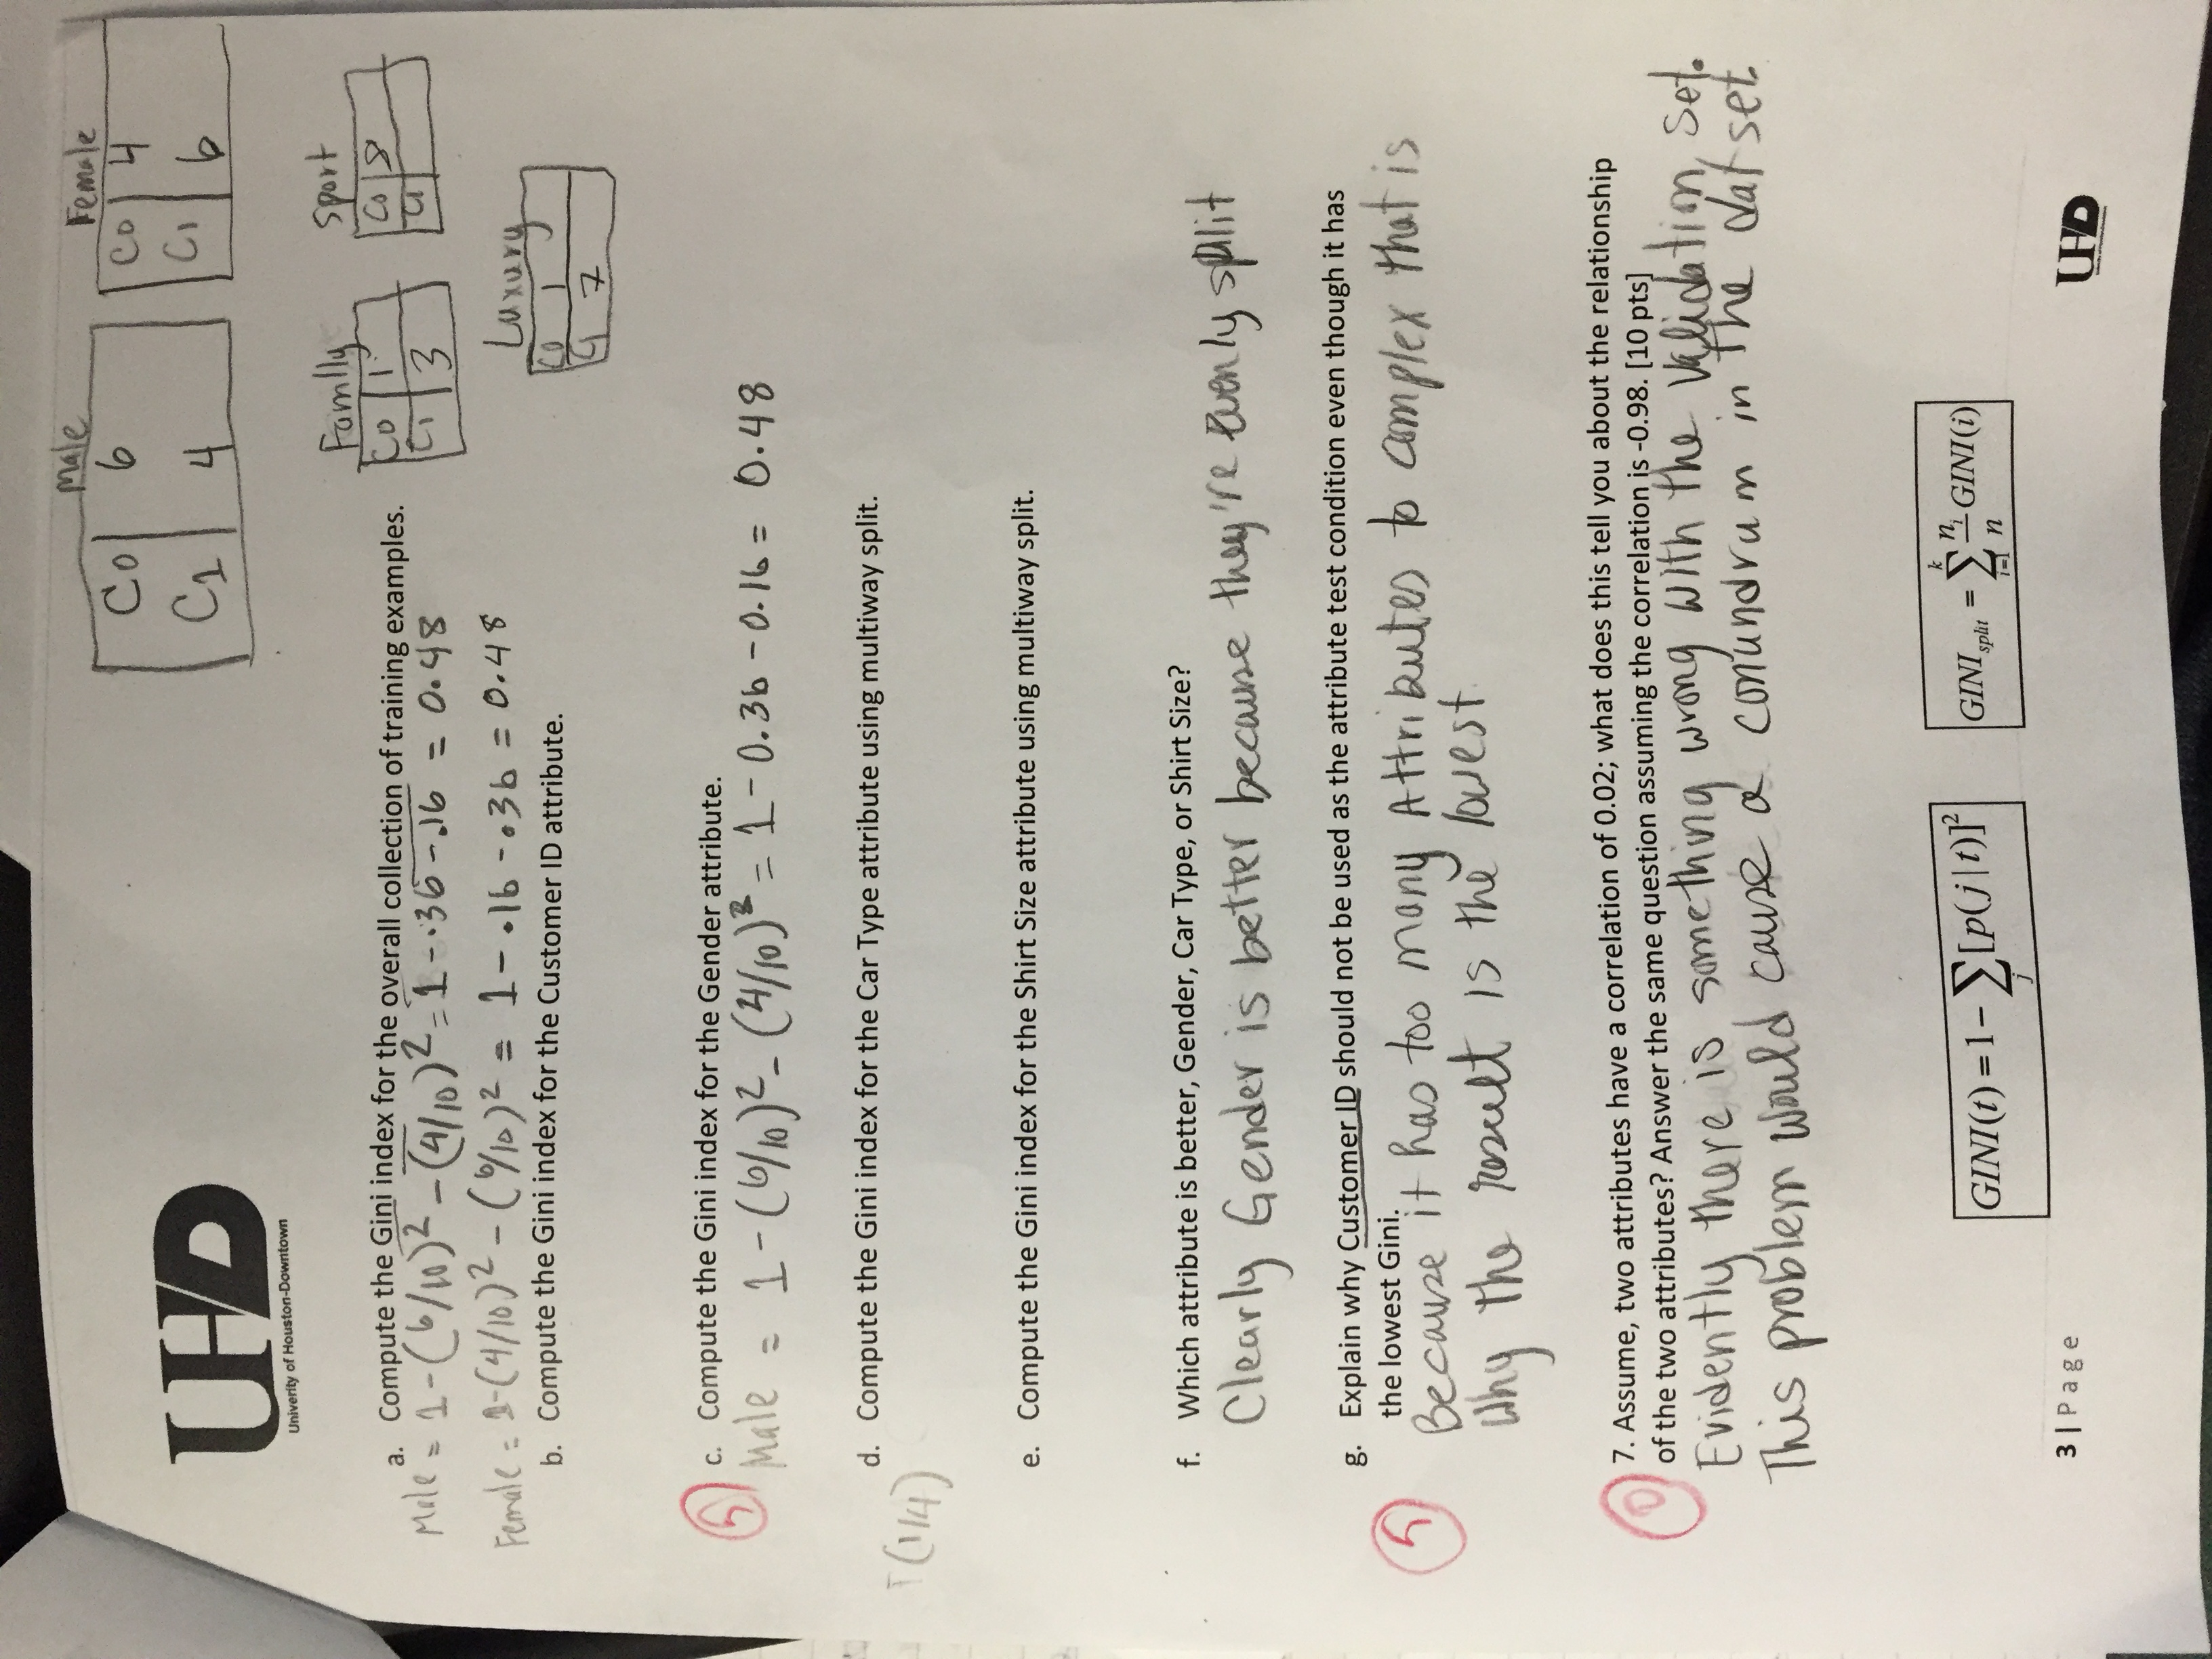 Male
Co 6
C1 4
Female
Co 4
C1 6
UHD
Univerity of Houston-Downtown
Family
Co 1
C1 3
Sport
Co 8
C1
Luxury
C0 1
C1 7
a. Compute the Gini index for the overall collection of training examples.
Male = 1-(6/10)² - (4/10)² = 1-.36-.16 = 0.48
Female = 1-(4/10)² - (6/10)² = 1-.16-.36 = 0.48
b. Compute the Gini index for the Customer ID attribute.
5
c. Compute the Gini index for the Gender attribute.
Male = 1-(6/10)² - (4/10)² = 1-0.36-0.16 = 0.48
d. Compute the Gini index for the Car Type attribute using multiway split.
(1/4)
e. Compute the Gini index for the Shirt Size attribute using multiway split.
f. Which attribute is better, Gender, Car Type, or Shirt Size?
Clearly Gender is better because they're evenly split
g. Explain why Customer ID should not be used as the attribute test condition even though it has
the lowest Gini.
5
Because it has too many Attributes to complex that is
why the result is the lowest
0
7. Assume, two attributes have a correlation of 0.02; what does this tell you about the relationship
of the two attributes? Answer the same question assuming the correlation is -0.98. [10 pts]
Evidently there is something wrong with the validation set.
This problem would cause a conundrum in the dat set.
GINI(t) = 1 − ∑j [p(j | t)]²
GINIsplit = ∑i=1k ni/n GINI(i)
3 | Page
UHD